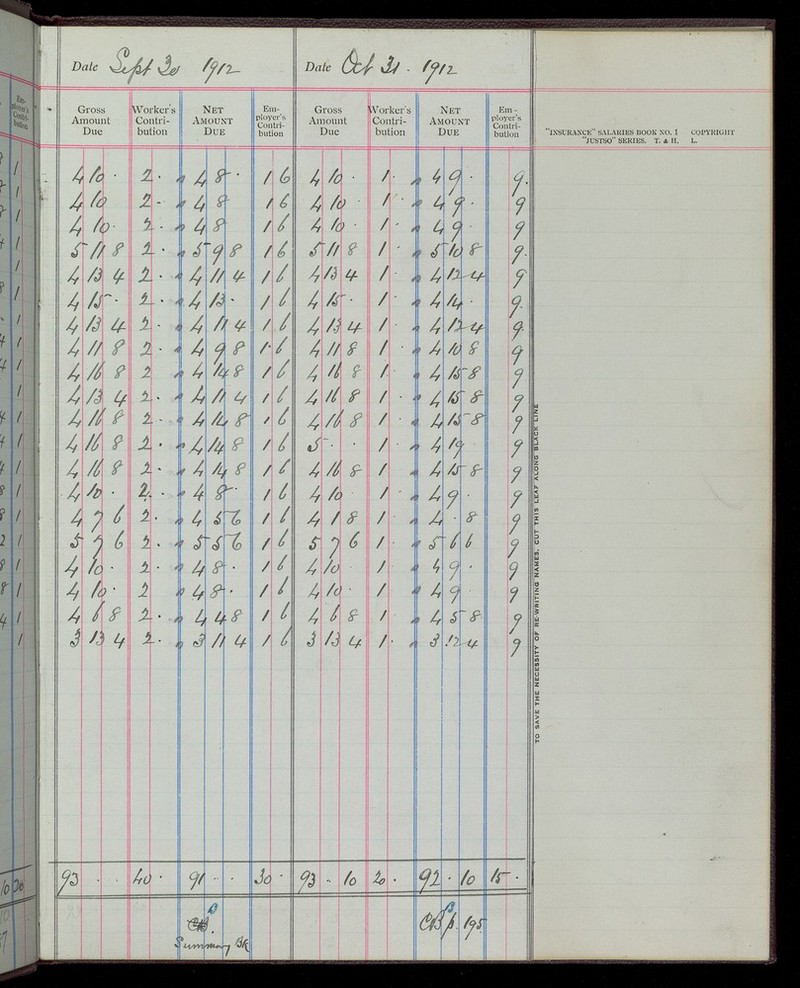 Date Sept 30 1912 Date Oct 31 . 1912
Gross Amount Due Worker's Contri-bution NET AMOUNT DUE Em-ployer's Contri-bution Gross Amount Due Worker's Contri-bution NET AMOUNT DUE Em-ployer's Contri-bution
"INSURANCE" SALARIES BOOK NO. 1 COPYRIGHT
"JUSTSO" SERIES. T. & H. L.
4 10 · 2 · 4 8 · 1 6 4 10 · 1 · 4 9 · 9 ·
4 10 2 - 4 8 1 6 4 10 · 1 · 4 9 · 9
4 10 · 2 · 4 8 1 6 4 10 · 1 · 4 9 · 9
5 11 8 2 · 5 9 8 1 6 5 11 8 1 · 5 10 8 9 ·
4 13 4 2 · 4 11 4 1 6 4 13 4 1 · 4 12 4 9
4 15 · 2 · 4 13 · 1 6 4 15 · 1 · 4 14 · 9 ·
4 13 4 2 · 4 11 4 1 6 4 13 4 1 · 4 12 4 9
4 11 8 2 · 4 9 8 1 · 6 4 11 8 1 · 4 10 8 9
4 16 8 2 4 14 8 1 6 4 16 8 1 · 4 15 8 9
4 13 4 2 · 4 11 4 1 6 4 16 8 1 · 4 15 8 9
4 16 8 2 · 4 14 8 1 6 4 16 8 1 · 4 15 8 9
4 16 8 2 · 4 14 8 1 6 5 · · 1 · 4 19 9
4 16 8 2 · 4 14 8 1 6 4 16 8 1 4 15 8 9
4 10 · 2 · 4 8 · 1 6 4 10 1 · 4 9 · 9
4 7 6 2 · 4 5 6 1 6 4 1 8 1 · 4 · 8 9
5 7 6 2 · 5 5 6 1 6 5 7 6 1 · 5 6 6 9
4 10 · 2 · 4 8 · 1 6 4 10 1 · 4 9 · 9
4 10 · 2 4 8 · 1 6 4 10 · 1 · 4 9 9
4 6 8 2 · 4 4 8 1 6 4 6 8 1 · 4 5 8 9
3 13 4 2 · 3 11 4 1 6 3 13 4 1 · 3 12 4 9
TO SAVE THE NECESSITY OF RE-WRITING NAMES, CUT THIS LEAF ALONG BLACK LINE
93 · · 40 · 91 - - 30 · 93 - 10 20 · 92 · 10 15 ·
CB. CB p. 195
Summary Bk